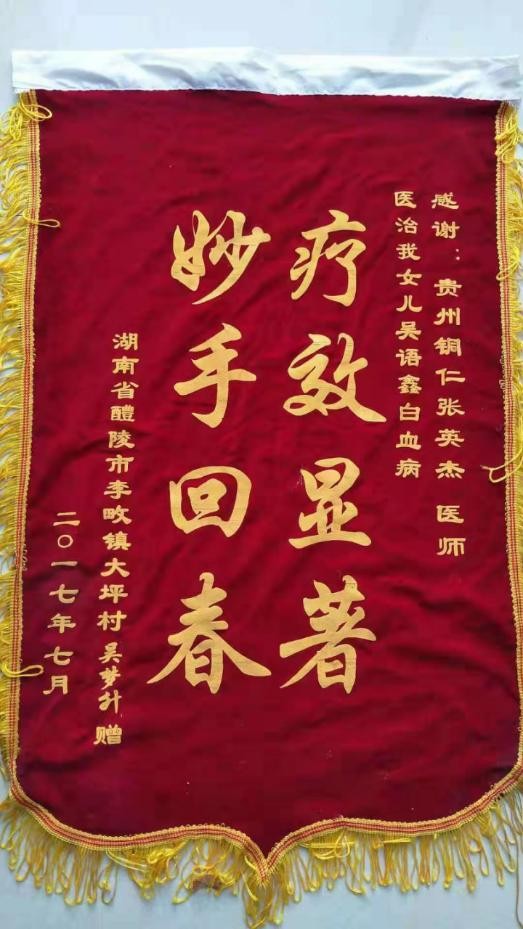 感谢：贵州铜仁张英杰 医师
医治我女儿吴语鑫白血病
疗效显著
妙手回春
湖南省醴陵市李畋镇大坪村吴梦升 赠
二〇一七年七月